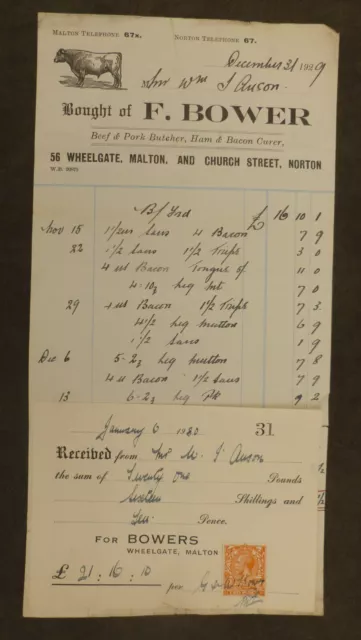 MALTON TELEPHONE 67x. NORTON TELEPHONE 67.
December 31 1929
Wm J Anson.
Bought of F. BOWER
Beef & Pork Butcher, Ham & Bacon Curer,
56 WHEELGATE, MALTON, AND CHURCH STREET, NORTON
B/Frd £ 16 10 1
Nov 15 Saus 4 Bacon 7 9
22 1/2 Saus 1 1/2 3 0
4 Bacon Tongue 4 0
4-10 1/2 leg 7 0
29 4 Bacon 1 1/2 7 3
4 1/2 leg mutton 6 9
1 1/2 saus 1 9
Dec 6 5-2 leg mutton 7 8
4 Bacon 1 1/2 Saus 7 9
13 6-2 leg Pk 9 2
January 6 1930 31
Received from J Anson
the sum of Twenty one Pounds
Sixteen Shillings and
Ten Pence.
FOR BOWERS
WHEELGATE, MALTON
£ 21 : 16 : 10